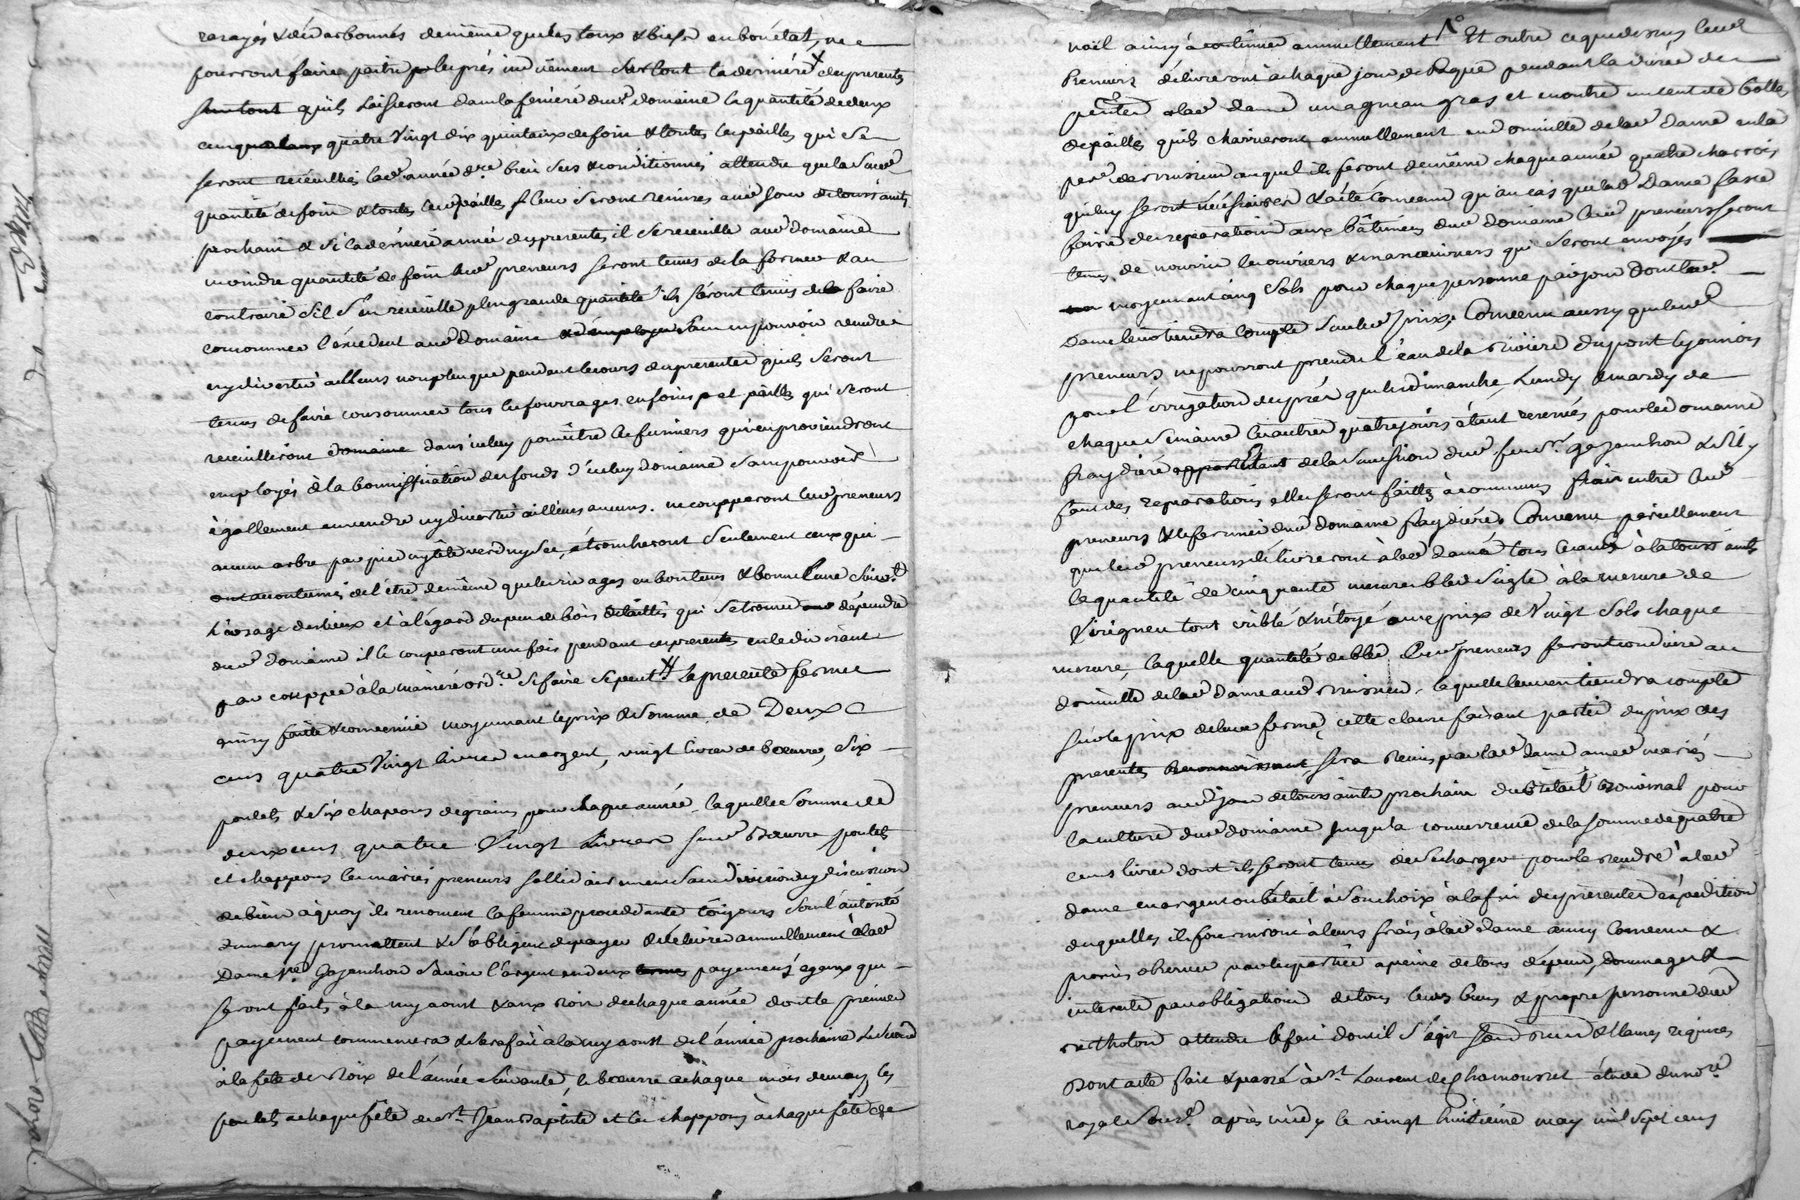 rarayés & déharbonnés de même que les toux & biefs en bon état, ne
pourront faire paitre les prés induement surtout la derniere des presentes
surtout quils laisseront dans la feniere dud domaine la quantité de deux
cens quatre vingt dix quintaux de foin & toutes les pailles qui se
seront receuillies lad année dre bien secs & conditionnés attendu que la susd
quantité de foin & toutes les pailles seront remises aud jour de toussaints
prochain & si la derniere année des presentes il se receuille aud domaine
moindre quantité de foin lesd preneurs seront tenus de la former & au
contraire s'il s'en receuille plus grande quantité ils seront tenus de faire
consommer l'excedent aud domaine sans en pouvoir vendre
ny divertir ailleurs non plus que pendant le cours des presentes quils seront
tenus de faire consommer tous les fourrages en foins et pailles qui seront
receuilliront domaine dans iceluy pour être les fumiers qui en proviendront
employés à la bonnification des fonds d'iceluy domaine sans pouvoir
égallement en vendre ny divertir ailleurs aucuns. ne coupperont lesd preneurs
aucun arbre par pied ny tête verd ny sec, ébrancheront seulement ceux qui
ont accoutumés de l'être de même que les rivages en bon tems & bonne lune suivt
l'usage des lieux et à l'égard du peu de bois taillis qui se trouve dépendre
dud domaine il le couperont une fois pendant ces presentes en le divisant
par couppe à la maniere ordre si faire se peut la presente ferme
ainsy faite & convenue moyennant le prix & somme de Deux
cens quatre vingt livres en argent, vingt livres de beurre, six
poulets & six chapons de grains pour chaque année, laquelle somme de
deux cens quatre vingt livres susd beurre poulets
et chappons les mariés preneurs sollidairement sans division ny discussion
de biens à quoy ils renoncent la femme procedante toujours sous l'autorité
du mary promettent & s'obligent de payer & délivrer annuellement à lad
Dame ve Gajanchon savoir l'argent en deux payements egaux qui
seront faits à la my aoust & aux rois de chaque année dont le premier
payement commencera & se fera à la my aoust de l'année prochaine le second
à la fête des Rois de l'année suivante, le beurre à chaque mois de may, les
poulets à chaque fête de st Jean Baptiste et les chappons à chaque fête de
noël ainsy à continuer annuellement Et outre ce que dessus lesd
preneurs délivreront à chaque jour de Paque pendant la durée des
presentes à lad dame un agneau gras et en outre un cent de bottes
de pailles quils charrieront annuellement au domicille de lad Dame en la
pese de Brussieu auquel ils feront de même chaque année quatre charrois
qui luy seront nécessaires & a été convenu qu'au cas que lad Dame fasse
faire des reparations aux bâtimens dud domaine lesd preneurs seront
tenus de nourrir les ouvriers & manoeuvriers qui seront envoyés
moyennant cinq sols pour chaque personne par jour dont lad
Dame leur tiendra compte sur led prix, Convenu aussy que lesd
preneurs ne pourront prendre l'eau de la riviere du pont lyonnois
pour l'irrigation des prés que le dimanche, Lundy & mardy de
chaque semaine les autres quatre jours étant reservés pour le domaine
fraydiere de la succession dud feu sr Gajanchon & s'il y
faut des reparations elles seront faittes à communs frais entre lesd
preneurs & le fermier dud domaine fraydiere, Convenu pareillement
que lesd preneurs délivreront à lad dame tous les ans à la toussaints
la quantité de cinquante mesures bled seigle à la mesure de
Virigneu tout criblé & nétoyé au prix de vingt sols chaque
mesure, laquelle quantité de bled lesd preneurs feront conduire au
domicille de lad dame aud Brussieu, laquelle leur en tiendra compte
sur le prix de lad ferme, cette clause faisant partie du prix des
presentes sera remis par lad dame auxd mariés
preneurs aud jour de toussaints prochain du bétail bouvinal pour
la culture dud domaine jusqu'à concurrence de la somme de quatre
cens livres dont ils seront tenus de se charger pour le rendre à lad
dame en argent ou bétail à son choix à la fin des presentes expedition
desquelles ils fourniront à leurs frais à lad dame ainsy convenu &
promis observer par les parties à peine de tous dépens, dommages &
interets par obligation de tous leurs biens & propre personne dud
Berthoton attendu le fait dont il s'agit soumissions & clauses requises
Dont acte fait & passé à st Laurent de Chamousset étude du nore
royal sousé après midy le vingt huitieme may mil sept cens